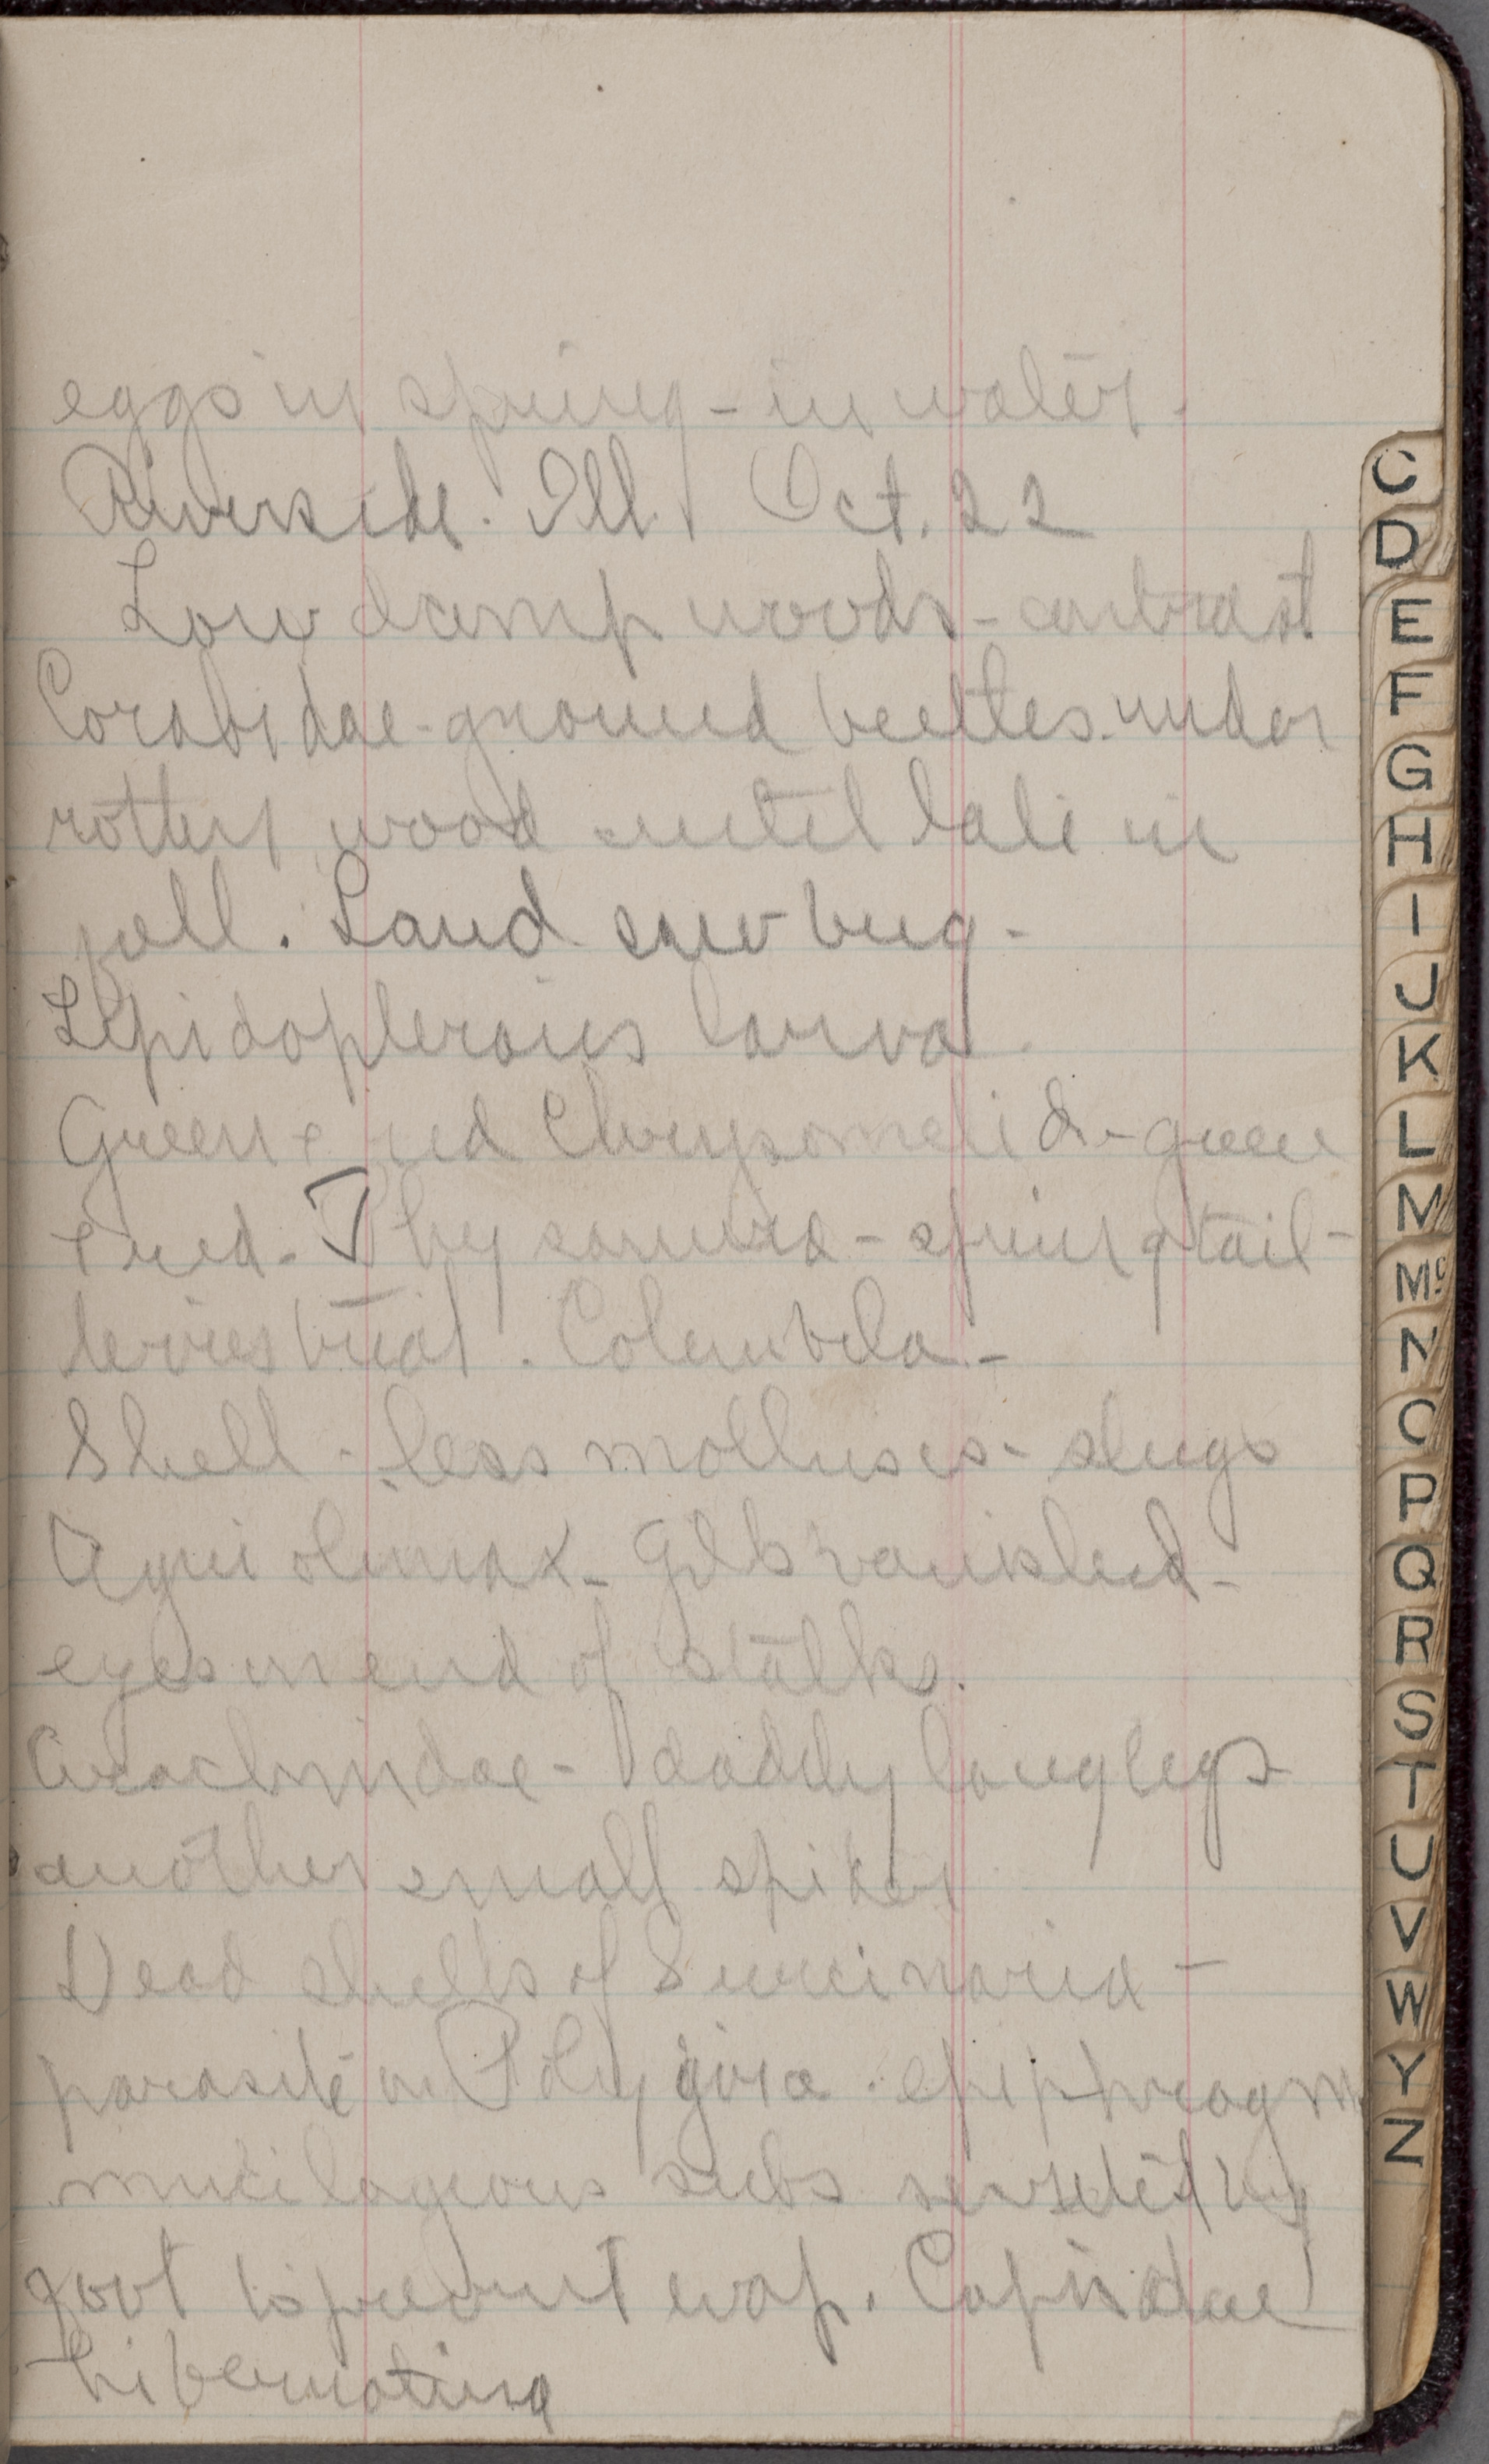 eggs in spring - in water.
Riverside. Ill. Oct. 22
Low damp woods - contrast
Carabidae - ground beetles. under
rotten wood until late in
fall. Land sow bug -
Lepidopterous larva.
Green & red Chrysomelid - green
& red. Thysanura - spring tail -
terrestrial. Columbela -
Shell - less molluscs - slugs
Agriolimax - Gills vanished -
eyes on end of stalks.
Arachnidae - daddy long legs
another small spider
Dead shells of Succinaria -
parasite on Polygira. epiphragm
mucilagious subs secreted by
foot to prevent evap. Capsidae
hibernating
C
D
E
F
G
H
I
J
K
L
M
Mc
N
O
P
Q
R
S
T
U
V
W
Y
Z